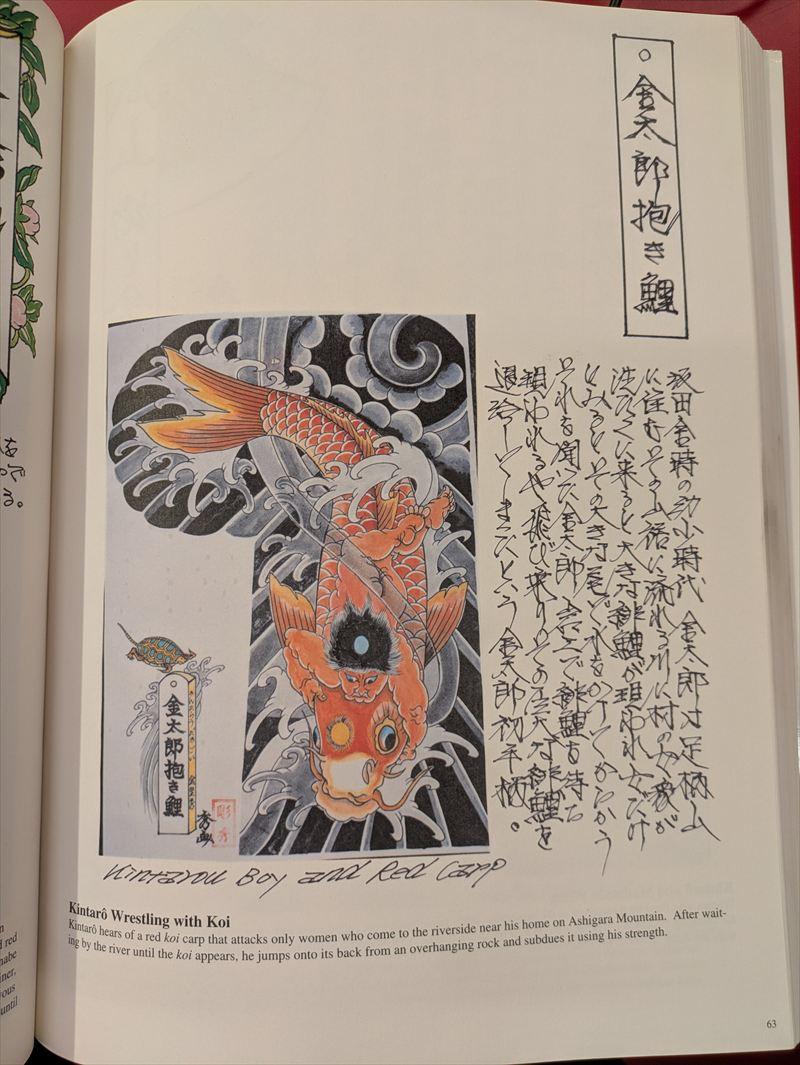 金太郎抱き鯉
坂田金時の幼少時代 金太郎は足柄山
に住むその山裾に流れる川に村の女衆が
洗たくに来ると大きな緋鯉が現われ女だけ
にみるとその大きな尾で水をかけてからかう
それを聞いた金太郎 岩上で緋鯉を待ち
現われるや飛び乗りその巨大な緋鯉を
退治してしまうという金太郎初手柄。
金太郎抱き鯉
彫秀
Kintarou Boy and Red Carp
Kintarô Wrestling with Koi
Kintarô hears of a red koi carp that attacks only women who come to the riverside near his home on Ashigara Mountain. After wait-
ing by the river until the koi appears, he jumps onto its back from an overhanging rock and subdues it using his strength.
63